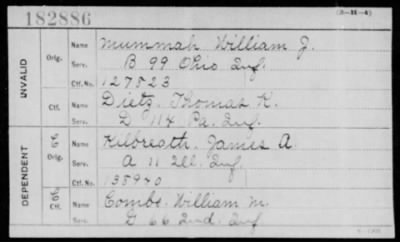 182886
(3-M-4)
INVALID
Orig.
Name Mummah, William J.
Serv. B 99 Ohio Inf.
Ctf. No. 127823
Ctf.
Name Dietz, Thomas K.
Serv. D 114 Pa. Inf.
DEPENDENT
Orig.
Name Kilbreath, James A.
Serv. A 11 Ill. Inf.
Ctf. No. 138940
Ctf.
Name Combs, William M.
Serv. D 66 Ind. Inf.